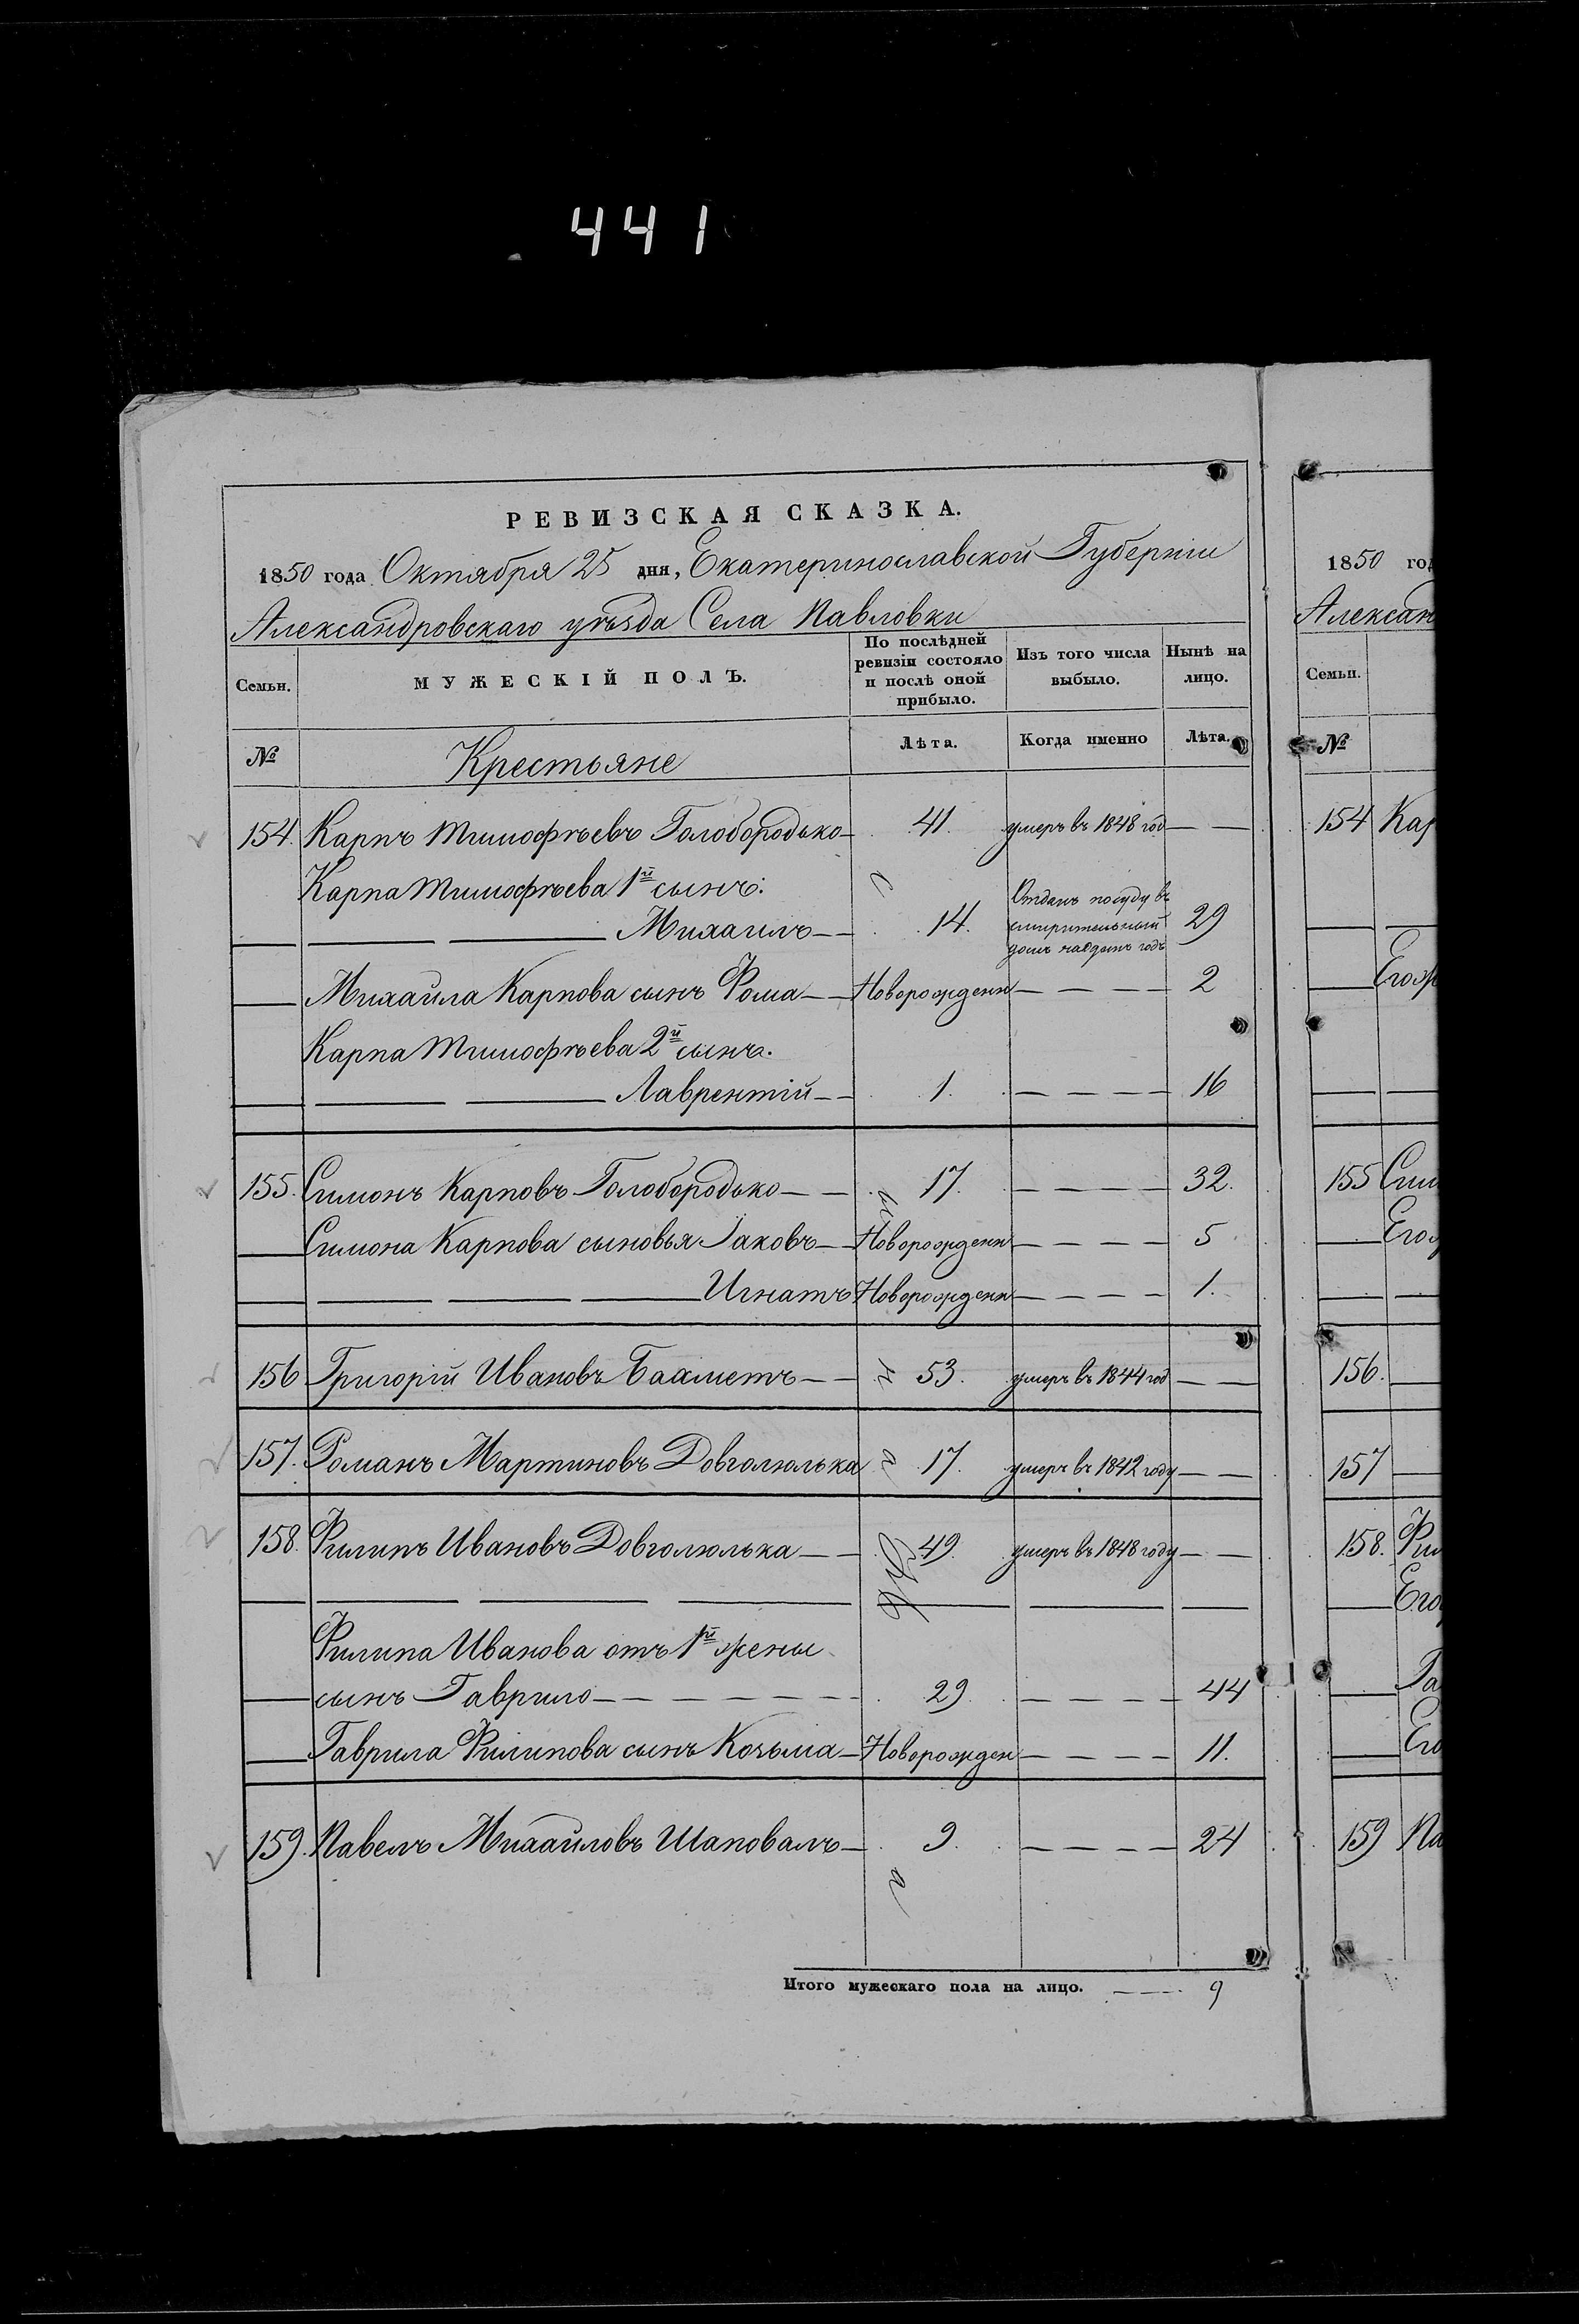 441
РЕВИЗСКАЯ СКАЗКА.
1850 года Октября 25 дня, Екатеринославской Губернiи
Александровскаго уѣзда Села Павловки
Семьи. МУЖЕСКIЙ ПОЛЪ. По послѣдней ревизiи состояло и послѣ оной прибыло. Изъ того числа выбыло. Нынѣ на лицо.
№ Крестьяне Лѣта. Когда именно Лѣта.
154. Карпъ Тимофѣевъ Голобородько 41. умеръ въ 1848 год
Карпа Тимофѣева 1й сынъ:
Михаилъ 14. Отданъ посуду въ смирительный домъ на одинъ годъ 29
Михаила Карпова сынъ Фома Новорожденн 2
Карпа Тимофѣева 2й сынъ.
Лаврентiй 1. 16
155. Симонъ Карповъ Голобородько 17. 32.
Симона Карпова сыновья Iаковъ Новорожденн 5
Игнатъ Новорожденн 1.
156 Григорiй Ивановъ Бахметъ 53. умеръ въ 1844 год
157. Романъ Мартиновъ Довголюлька 17. умеръ въ 1842 году
158. Филипъ Ивановъ Довголюлька 49. умеръ въ 1848 году
Филипа Иванова отъ 1й жены
сынъ Гаврило 29. 44
Гаврила Филипова сынъ Козьма Новорожден 11.
159. Павелъ Михайловъ Шаповалъ 9. 24
Итого мужескаго пола на лицо. 9
1850 год
Александ
Семьи.
№
154 Кар
Его ж
155 Сим
Его
156.
157
158. Фи
Его
Га
Его
159 Па